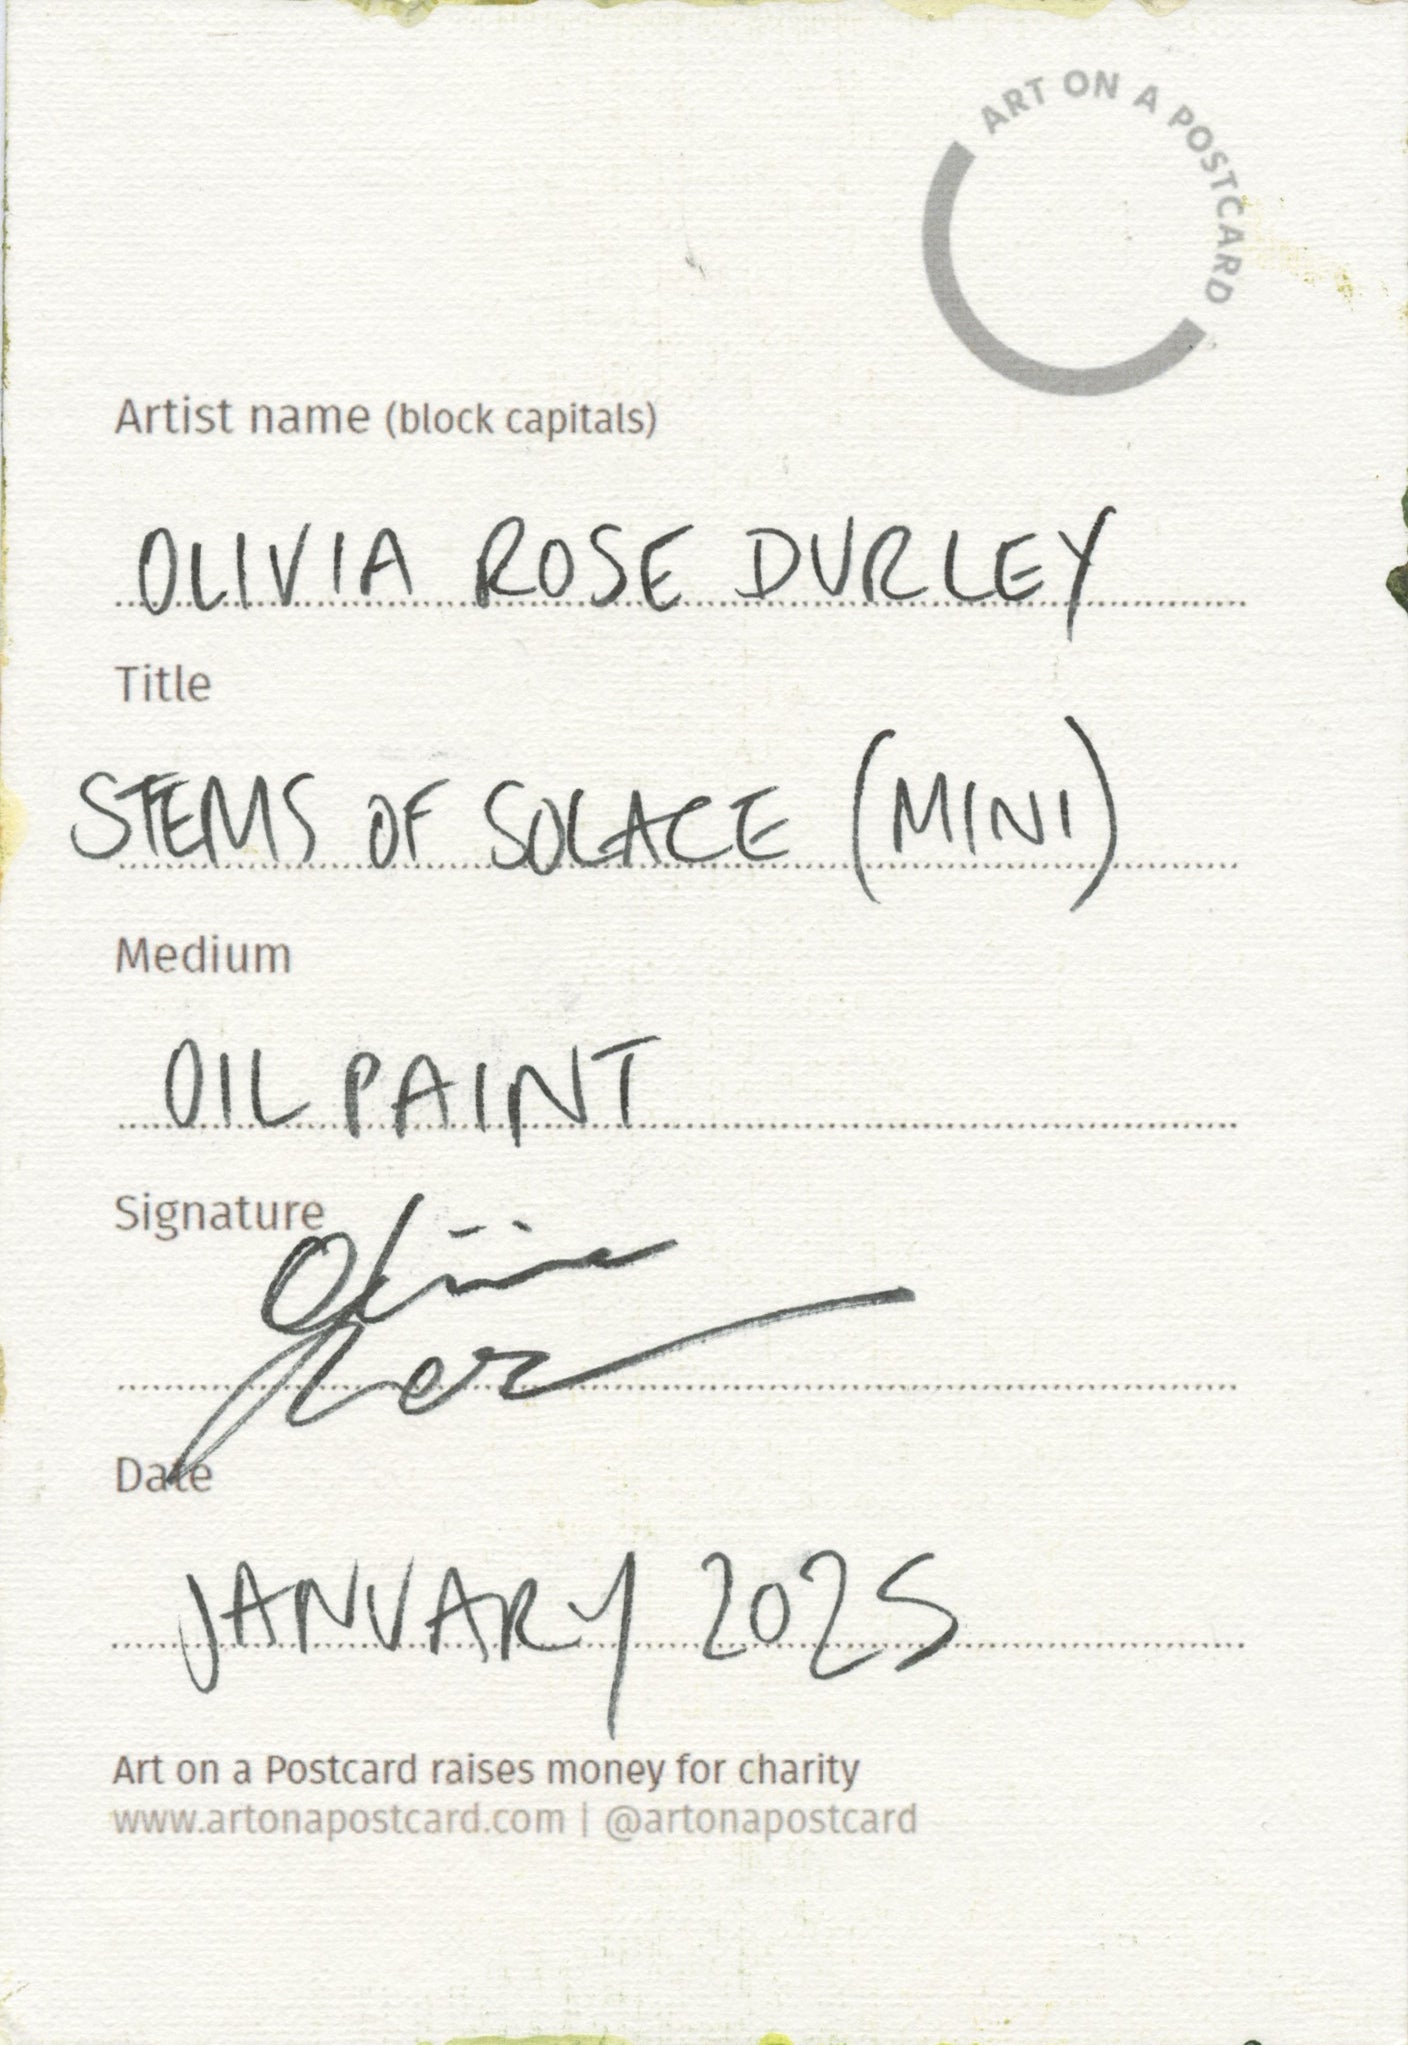 ART ON A POSTCARD
Artist name (block capitals)
OLIVIA ROSE DURLEY
Title
STEMS OF SOLACE (MINI)
Medium
OIL PAINT
Signature
Olivia
Rose
Date
JANUARY 2025
Art on a Postcard raises money for charity
www.artonapostcard.com | @artonapostcard